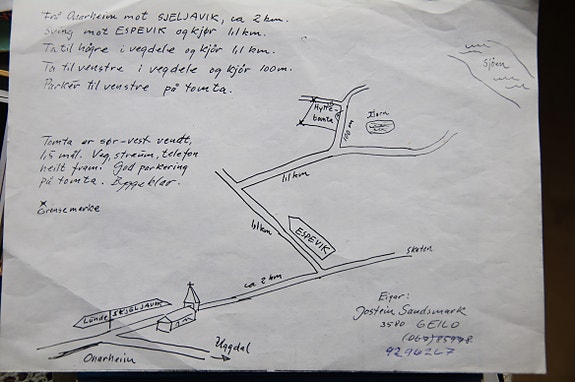 Frå Onarheim mot SJELJAVIK, ca 2 km.
Sving mot ESPEVIK og kjør 1,1 km.
Ta til høgre i vegdele og kjør 1,1 km.
Ta til venstre i vegdele og kjør 100 m.
Parker til venstre på tomta.
Sjöen
Hytte-
tomta
Tjørn
100 m
Tomta er sør-vest vendt,
1,5 mål. Veg, straum, telefon
heilt fram. God parkering
på tomta. Byggeklar.
Grensemerke
1,1 km
1,1 km
ESPEVIK
Skaten
ca 2 km
Lunde
SKJELJAVIK
Onarheim
Uggdal
Eigar:
Jostein Sandsmark
3580 GEILO